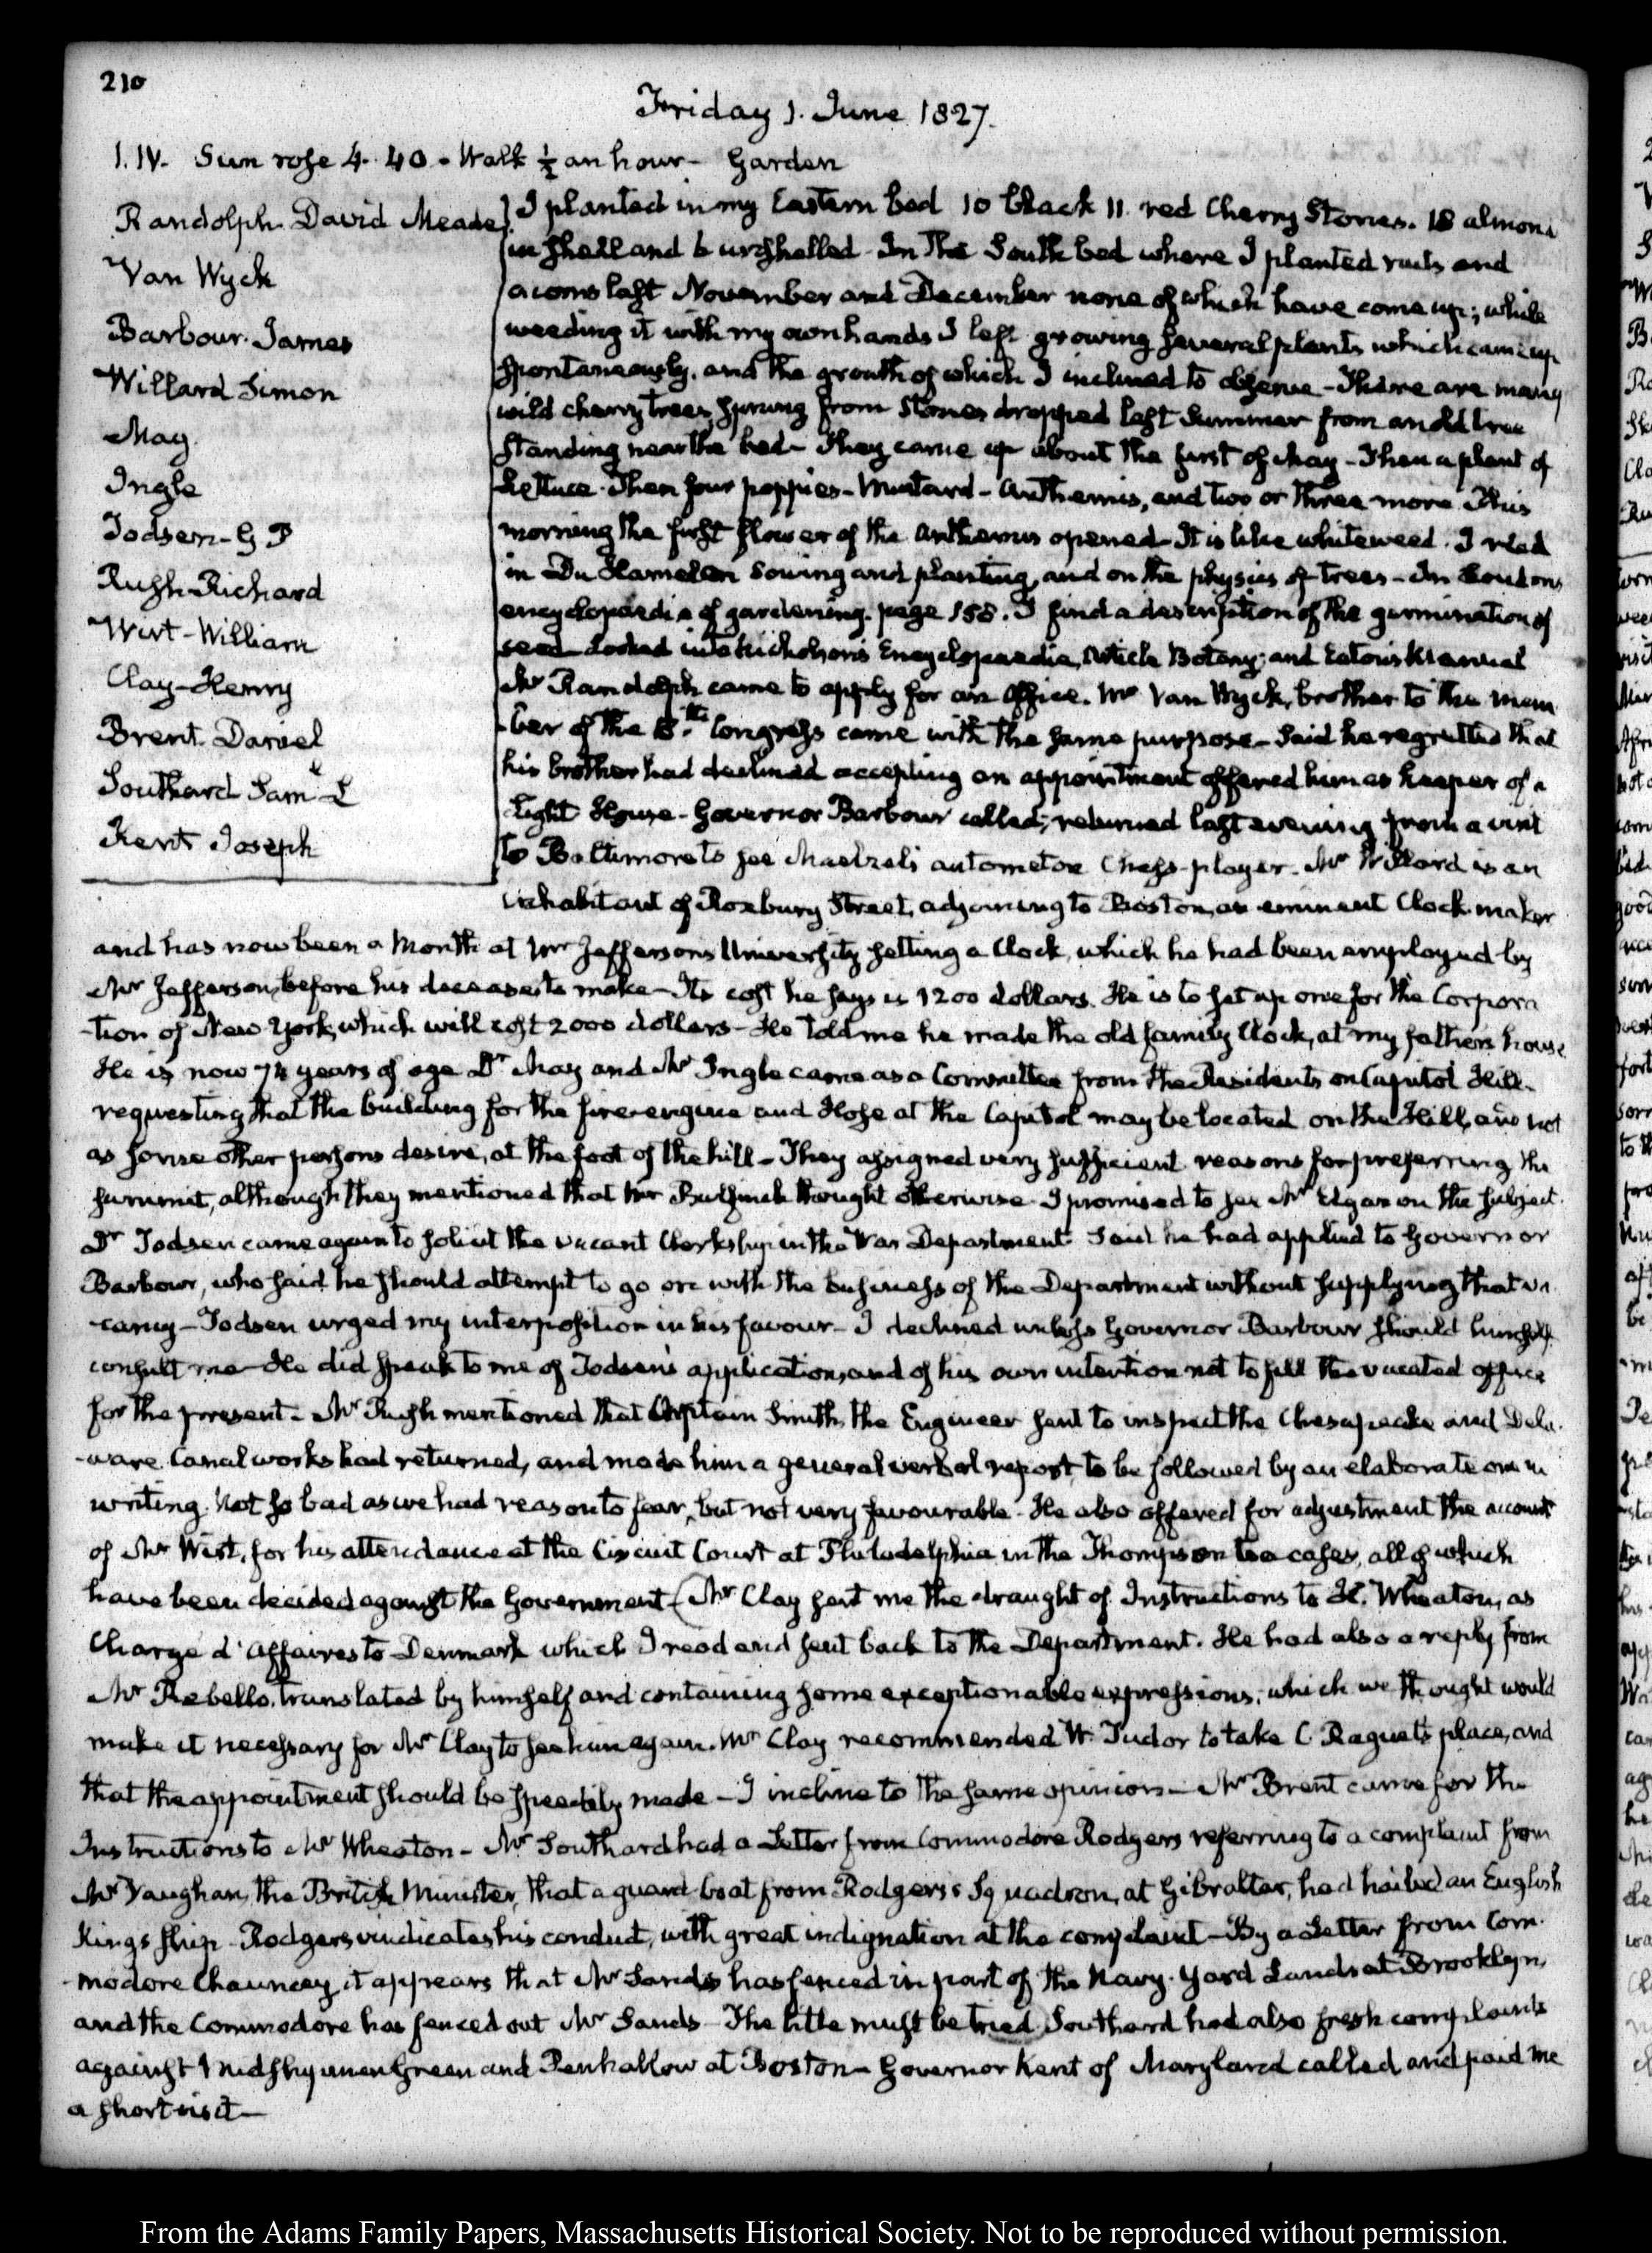 210
Friday 1. June 1827.
1. IV. Sun rose 4. 40. Walk ½ an hour - Garden
Randolph. David Meade
Van Wyck
Barbour. James
Willard Simon
May
Ingle
Todsen - G P
Rush - Richard
Wirt - William
Clay - Henry
Brent. Daniel
Southard Saml L
Kent Joseph
I planted in my Eastern bed 10 black 11 red Cherry Stones. 18 almond
in shell and 6 unshelled - In the South bed where I planted nuts and
acorns last November and December none of which have come up; while
weeding it with my own hands I left growing several plants which came up
spontaneously, and the growth of which I inclined to observe - There are many
wild cherry trees, sprung from stones dropped last Summer from an old tree
standing near the bed - They came up about the first of May - Then a plant of
Lettuce. Then four poppies - Mustard - Anthemis, and two or three more. This
morning the first flower of the Anthemis opened - It is like whiteweed. I read
in Du Hamel on Sowing and planting, and on the physics of trees - In Loudons
encyclopaedia of gardening. page 158. I find a description of the germination of
seed - Looked into Nicholson's Encyclopaedia, Article Botany; and Eaton's Manual
Mr Randolph came to apply for an Office. Mr Van Wyck, brother to the mem
-ber of the 18th Congress came with the same purpose - Said he regretted that
his brother had declined accepting an appointment offered him as keeper of a
Light House - Governor Barbour called; returned last evening from a visit
to Baltimore to see Maelzel's automaton Chess-player. Mr Willard is an
inhabitant of Roxbury Street, adjoining to Boston, an eminent Clock maker
and has now been a Month at Mr Jeffersons University setting a Clock, which he had been employed by
Mr Jefferson, before his decease to make - Its cost he says is 1200 dollars. He is to set up one for the Corpora
-tion of New York, which will cost 2000 dollars - He told me he made the old family Clock, at my father's house
He is now 74 years of age Dr May and Mr Ingle came as a Committee from the Residents on Capitol Hill
requesting that the building for the fire-engine and Hose at the Capitol may be located on the Hill, and not
as some other persons desire, at the foot of the hill - They assigned very sufficient reasons for preferring the
summit, although they mentioned that Mr Bulfinch thought otherwise. I promised to see Mr Elgar on the subject.
Dr Todsen came again to solicit the vacant Clerkship in the War Department. Said he had applied to Governor
Barbour, who said he should attempt to go on with the business of the Department without supplying that va
-cancy - Todsen urged my interposition in his favour - I declined unless Governor Barbour should himself
consult me - He did speak to me of Todsen's application, and of his own intention not to fill the vacated office
for the present. Mr Rush mentioned that Captain Smith, the Engineer sent to inspect the Chesapeake and Dela
-ware Canal works had returned, and made him a general verbal report, to be followed by an elaborate one in
writing. Not so bad as we had reason to fear, but not very favourable. He also offered for adjustment the account
of Mr Wirt, for his attendance at the Circuit Court at Philadelphia in the Thompson tea cases, all of which
have been decided against the Government - Mr Clay sent me the draught of Instructions to H. Wheaton, as
Charge d'Affaires to Denmark which I read and sent back to the Department. He had also a reply from
Mr Rebello, translated by himself and containing some exceptionable expressions; which we thought would
make it necessary for Mr Clay to see him again. Mr Clay recommended W. Tudor to take C Raguet's place, and
that the appointment should be speedily made - I incline to the same opinion - Mr Brent came for the
Instructions to Mr Wheaton - Mr Southard had a Letter from Commodore Rodgers referring to a complaint from
Mr Vaughan, the British Minister, that a guard-boat from Rodgers's Squadron, at Gibraltar, had hailed an English
Kings ship - Rodgers vindicates his conduct, with great indignation at the complaint - By a Letter from Com
-modore Chauncey it appears that Mr Sands has fenced in part of the Navy-Yard Lands at Brooklyn,
and the Commodore has fenced out Mr Sands - The title must be tried Southard had also fresh complaints
against Midshipmen Green and Penhallow at Boston - Governor Kent of Maryland called and paid me
a short visit -
From the Adams Family Papers, Massachusetts Historical Society. Not to be reproduced without permission.